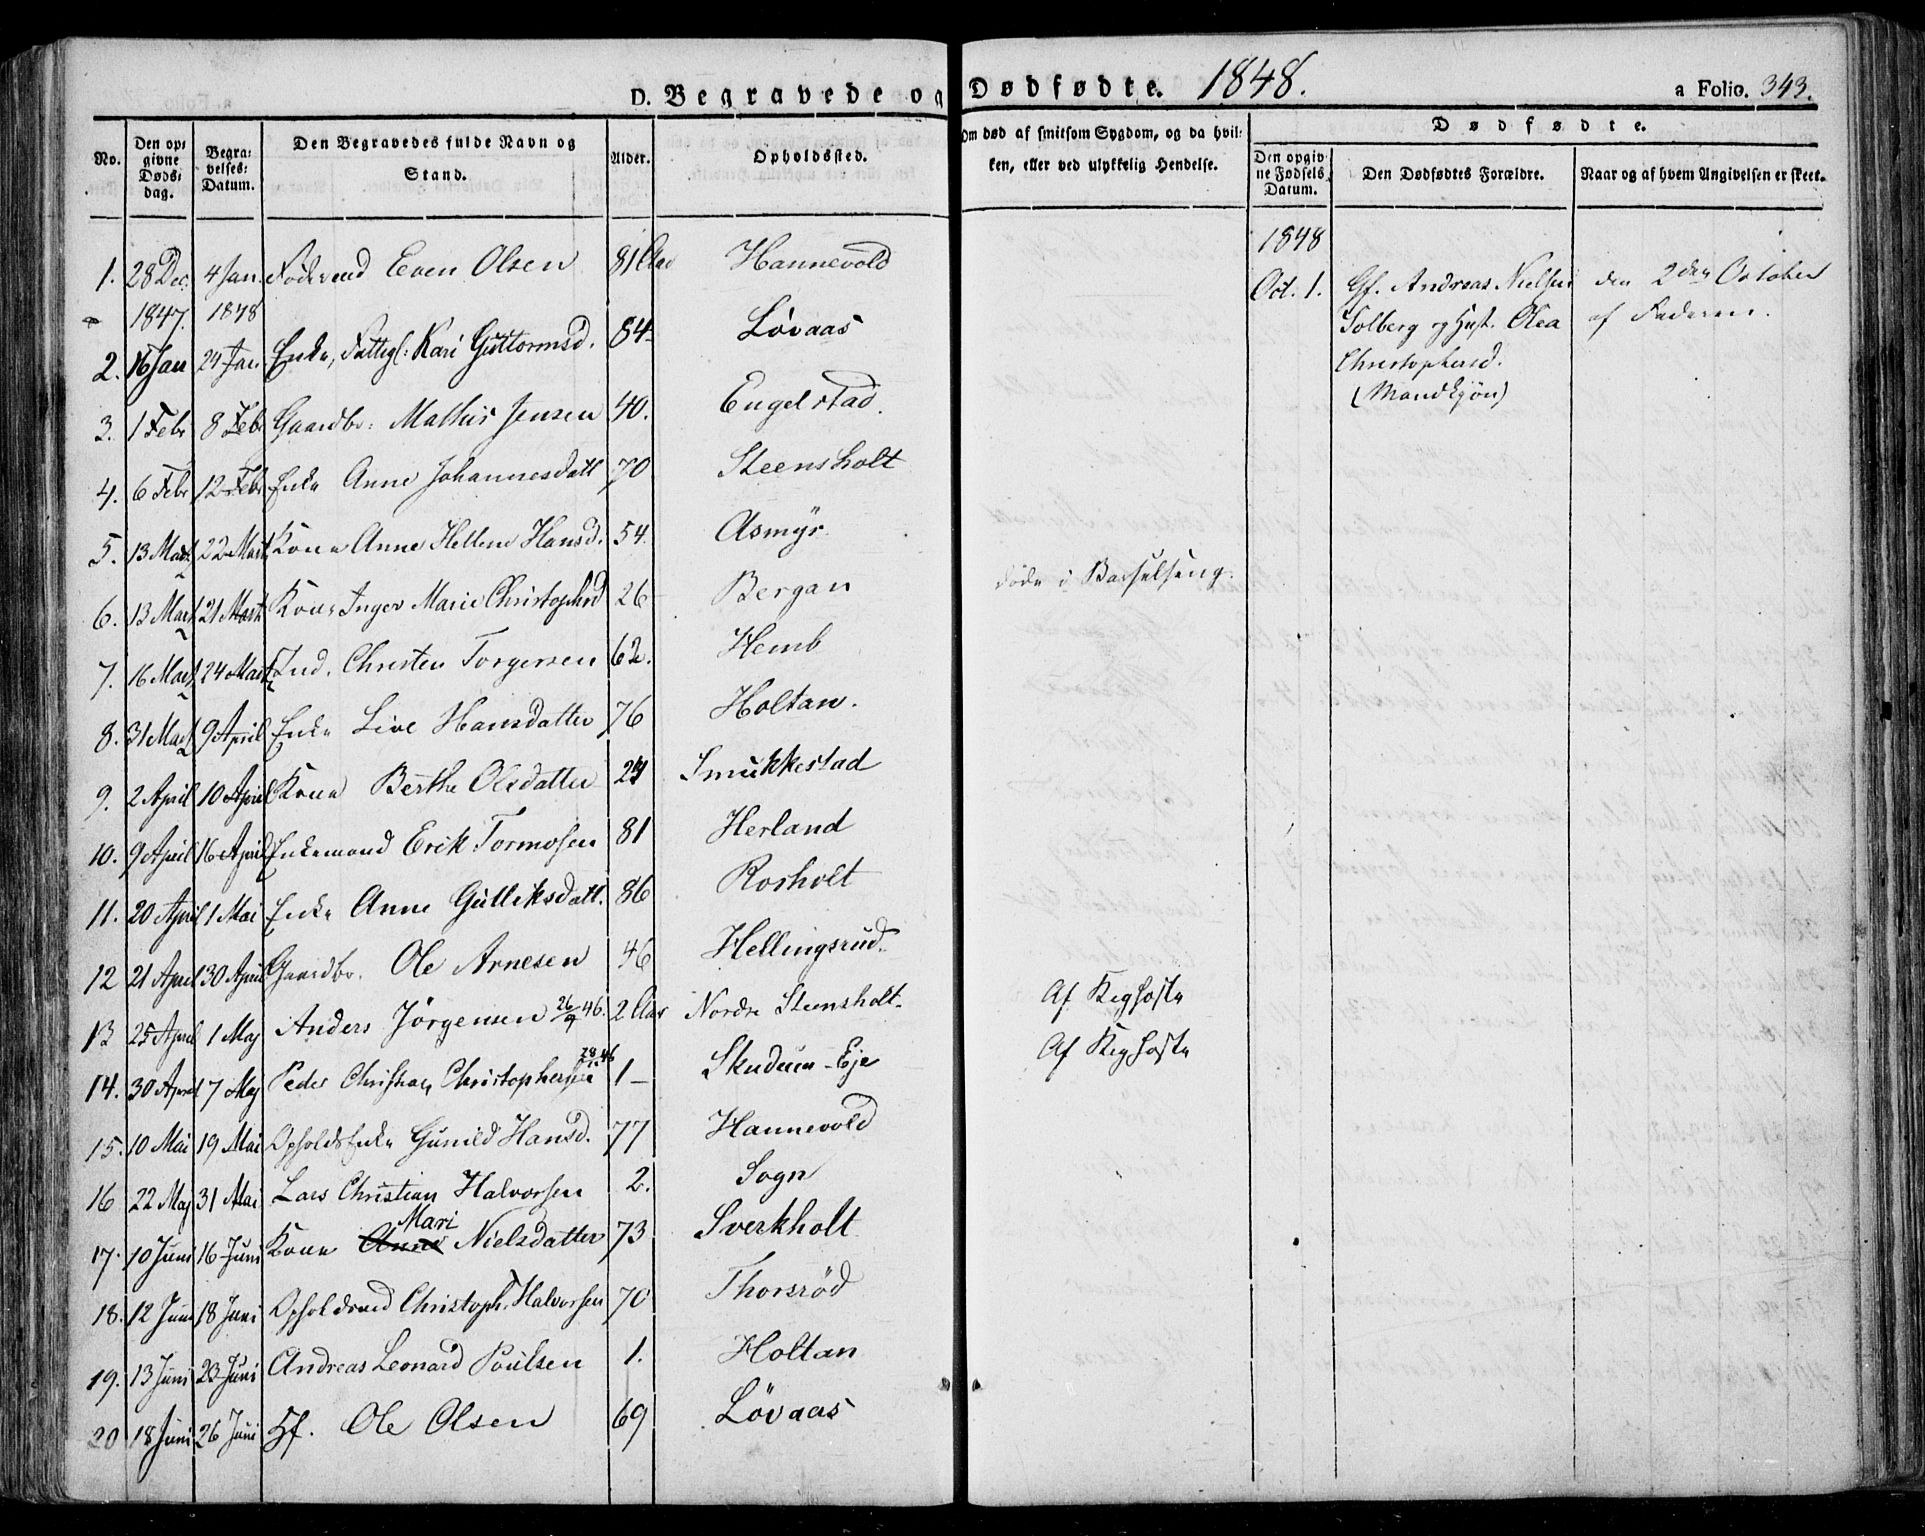 D. Begravede og Dødfødte. 1848. a Folio. 343.
No. | Den opgivne Dødsdag. | Begravelses-Datum. | Den Begravedes fulde Navn og Stand. | Alder. | Opholdssted. | Om død af smitsom Sygdom, og da hvilken, eller ved ulykkelig Hendelse.
Dødfødte.
Den opgivne Fødsels Datum. | Den Dødfødtes Forældre. | Naar og af hvem Angivelsen er skeet.
1. 28 Dec. 1847. 4 Jan. 1848 Føderaad Even Olsen 81 Aar Hannevold
2. 16 Jan 24 Jan. Enke, Fattigl: Kari Guttormsd. 84 Løvaas
3. 1 Febr 8 Febr Gaardbr: Mathis Jensen 40. Engelstad.
4. 6 Febr 12 Febr Enke Anne Johannesdatt 70 Steensholt
5. 13 Mart. 22 Mart. Kone Anne Hellene Hansd. 54. Asmyr.
6. 13 Mart. 21 Mart. Kone Inger Marie Christophersd 26 Bergan døde i Barselseng.
7. 16 Mart. 24 Mart. Ind. Christen Torgersen 62. Hemb
8. 31 Mart 9 April Enke Live Hansdatter 76 Holtan.
9. 2 April 10 April Kone Berthe Olsdatter 24 Smukkestad
10. 9 April 16 April Enkemand Erik Tormosen 81 Herland
11. 20 April 1 Mai Enke Anne Gulliksdatt. 86 Rosholt
12 21 April 30 April Gaardbr. Ole Arnesen 46 Hellingsrud.
13 25 April 1 Maj Anders Jörgensen 26/9 46. 2 Aar Nordre Steensholt. Af Kighoste
14. 30 April 7 Maj Peder Christian Christophersen 1 Skuderu-Eje Af Kighoste
15. 10 Mai 19 Mai Opholds Enke Gunild Hansd. 77 Hannevold
16 22 Maj 31 Mai Lars Christian Halvorsen 2. Sogn
17. 10 Juni 16 Juni Kone Anne Mari Nielsdatter 73 Sverkholt
18. 12 Juni 18 Juni Opholdsmd Christoph. Halvorsen 70 Thorsröd
19. 13 Juni 23 Juni Andreas Leonard Poulsen 1. Holtan
20 18 Juni 26 Juni Hf. Ole Olsen 69 Løvaas
1848
Oct. 1. Gf. Andreas Nielsen den 2den October
Solberg og Hust. Olea af Faderen.
Christophersd.
(Mandkjøn)